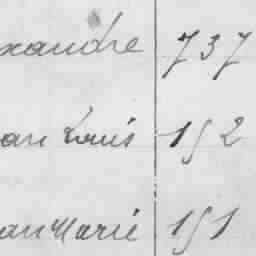 xandre 737
an Louis 152
an Marie 151